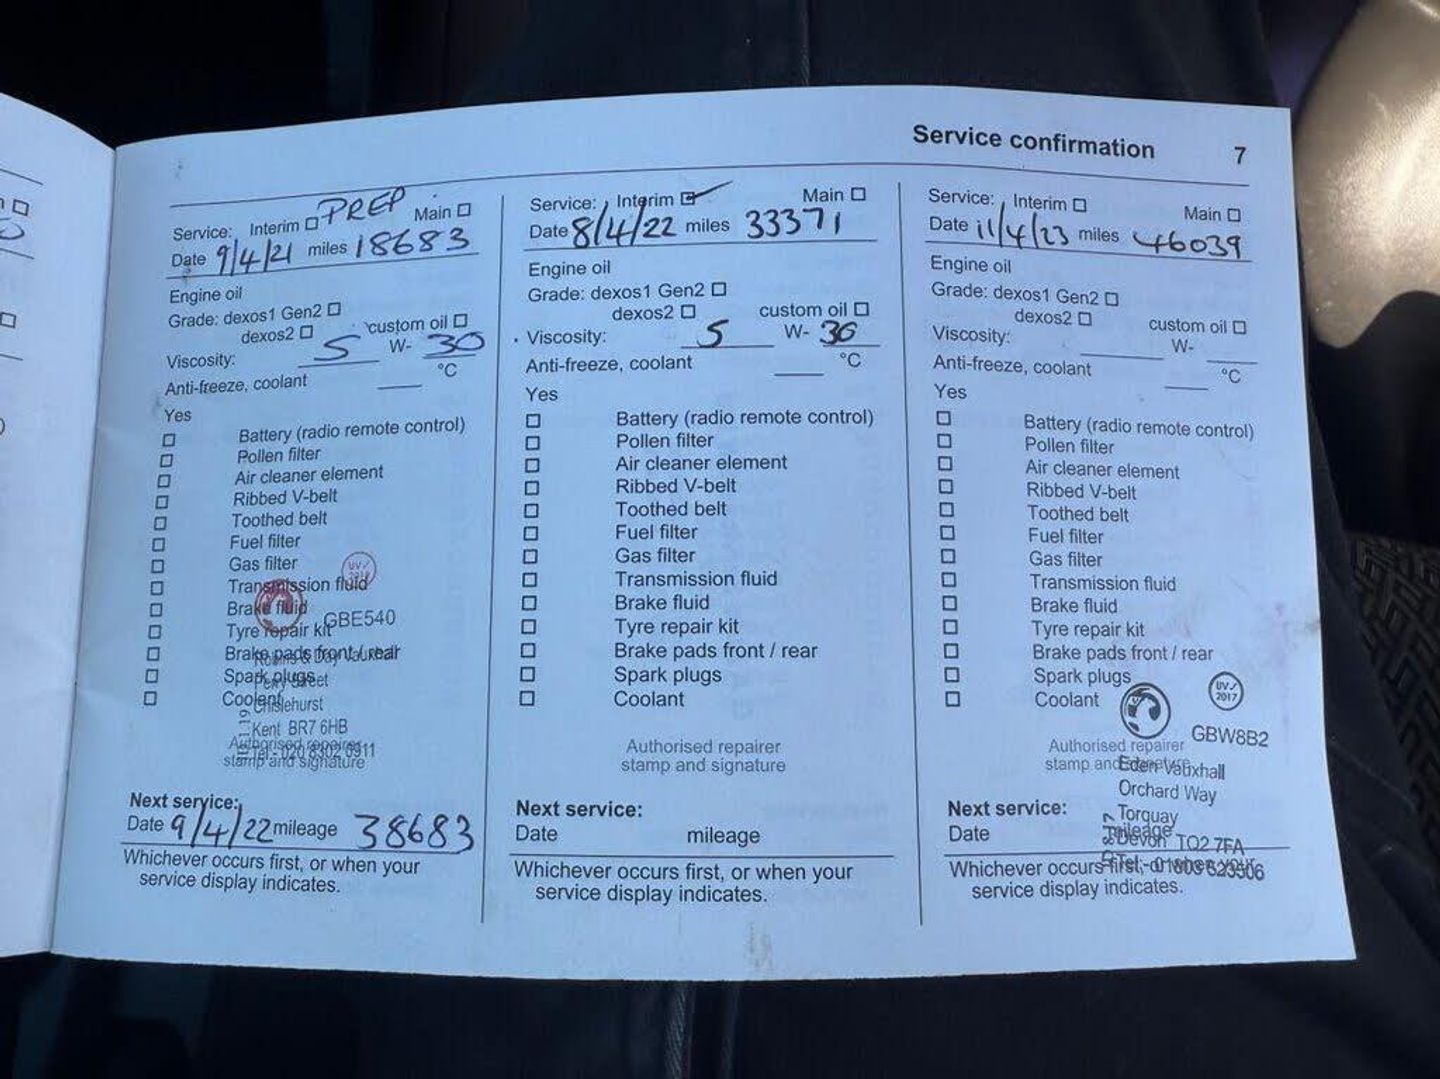 Service confirmation 7
Service: Interim PREP Main
Date 9/4/21 miles 18683
Engine oil
Grade: dexos1 Gen2
dexos2 custom oil
Viscosity: 5 W- 30
Anti-freeze, coolant °C
Yes
Battery (radio remote control)
Pollen filter
Air cleaner element
Ribbed V-belt
Toothed belt
Fuel filter
Gas filter
Transmission fluid
UV✓
2018
Brake fluid
GBE540
Tyre repair kit
Brake pads front / rear
Robins & Day Vauxhall
Spark plugs
Street
Coolant
Chislehurst
Kent BR7 6HB
Authorised repairer
Tel:- 020 8302 0911
stamp and signature
Next service:
Date 9/4/22 mileage 38683
Whichever occurs first, or when your
service display indicates.
Service: Interim Main
Date 8/4/22 miles 33371
Engine oil
Grade: dexos1 Gen2
dexos2 custom oil
Viscosity: 5 W- 30
Anti-freeze, coolant °C
Yes
Battery (radio remote control)
Pollen filter
Air cleaner element
Ribbed V-belt
Toothed belt
Fuel filter
Gas filter
Transmission fluid
Brake fluid
Tyre repair kit
Brake pads front / rear
Spark plugs
Coolant
Authorised repairer
stamp and signature
Next service:
Date mileage
Whichever occurs first, or when your
service display indicates.
Service: Interim Main
Date 11/4/23 miles 46039
Engine oil
Grade: dexos1 Gen2
dexos2 custom oil
Viscosity: W-
Anti-freeze, coolant °C
Yes
Battery (radio remote control)
Pollen filter
Air cleaner element
Ribbed V-belt
Toothed belt
Fuel filter
Gas filter
Transmission fluid
Brake fluid
Tyre repair kit
Brake pads front / rear
Spark plugs
Coolant
UV✓
2017
GBW8B2
Authorised repairer
stamp and signature
Eden Vauxhall
Orchard Way
Torquay
Devon TQ2 7FA
Next service:
Date mileage
Whichever occurs first, or when your
service display indicates.